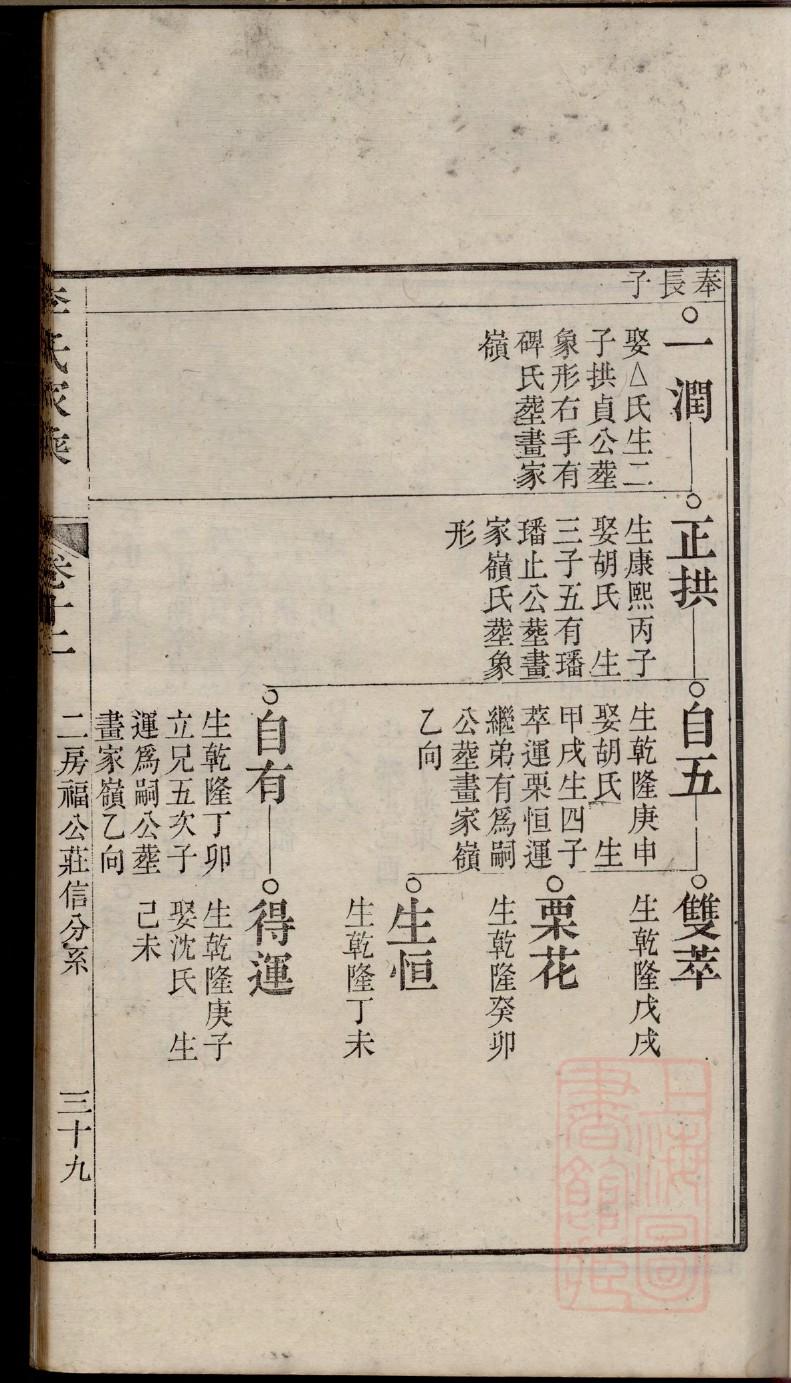 奉長子
一潤
娶△氏生二
子拱貞公塟
象形右手有
碑氏塟畫家
嶺
正拱
生康熙丙子
娶胡氏　生
三子五有璠
璠止公塟畫
家嶺氏塟象
形
自五
生乾隆庚申
娶胡氏　生
甲戌生四子
萃運栗恒運
繼弟有爲嗣
公塟畫家嶺
乙向
雙萃
生乾隆戊戌
栗花
生乾隆癸卯
生恒
生乾隆丁未
自有
生乾隆丁卯
立兄五次子
運爲嗣公塟
畫家嶺乙向
得運
生乾隆庚子
娶沈氏　生
己未
李氏家乘
卷十二
二房福公莊信分系
三十九
上海圖書館藏